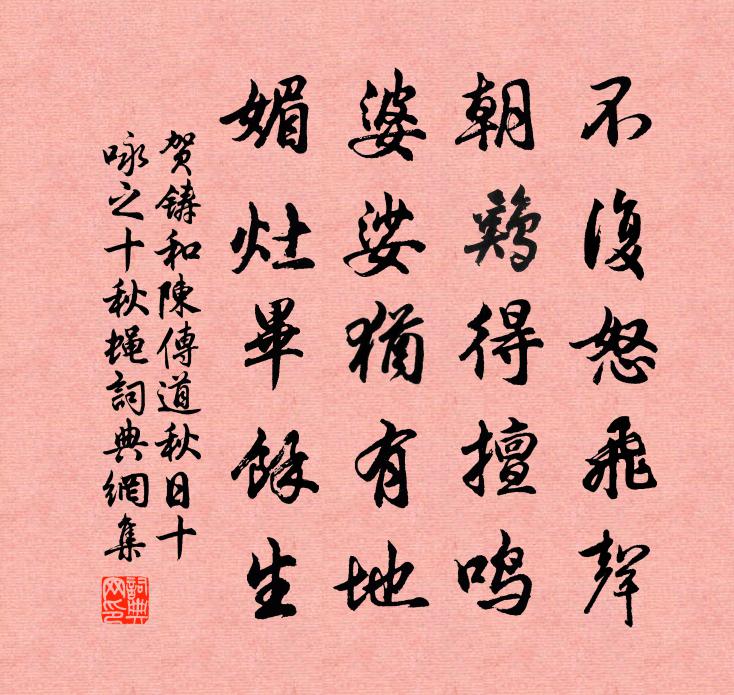 不復怒飛聲
朝鷄得擅鳴
婆娑猶有地
媚灶畢餘生
賀鑄和陳傳道秋日十
咏之十秋蠅詞典網集
詞典网印